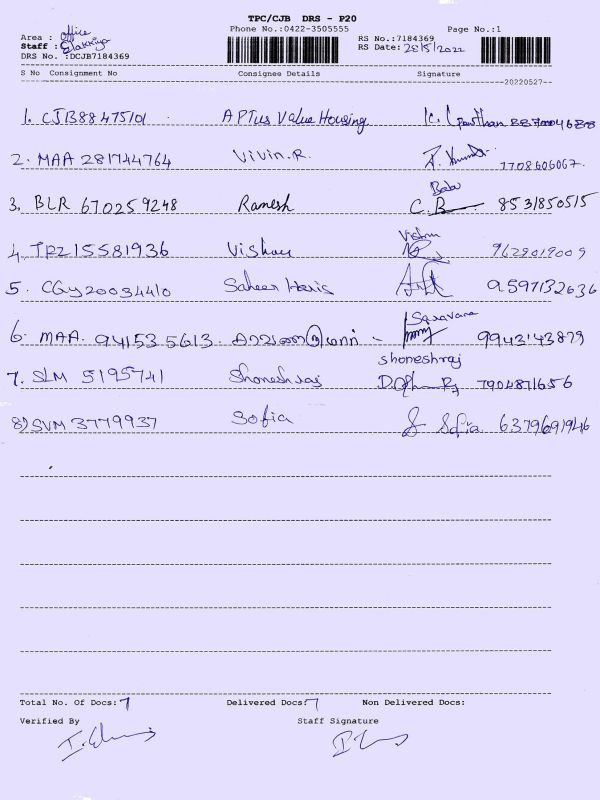 TPC/CJB DRS - P20
Phone No.:0422-3505555 Page No.:1
Area : office
Staff : Elakkiya RS No.:7184369
DRS No. :DCJB7184369 RS Date: 28/5/2022
S No Consignment No Consignee Details Signature
--20220527--
1. CJB88475101 APTus Value Housing
2. MAA 281744764 Vivin.R. 7708606067.
3. BLR 670259248 Ramesh Babu C.B 8531850515
4. TPZ15581936 Vishnu Vishnu 9629019009
5. CGY20034410 Saheer Haris 9597132636
6. MAA. 941535613. Saravana 9943143879
7. SLM 5195741 Shoneshraj shoneshraj 7904871656
8) SVM 3779937 Sofia Sofia 6379691946
Total No. Of Docs: 7 Delivered Docs: 7 Non Delivered Docs:
Verified By Staff Signature